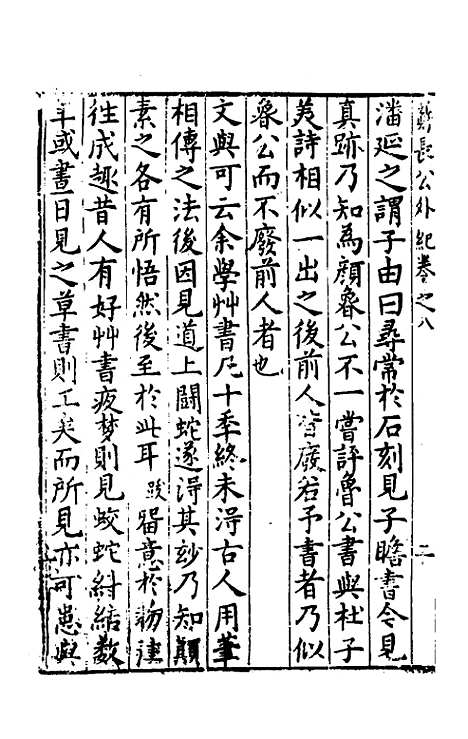 蘇長公外紀卷之八 二
潘延之謂子由曰尋常於石刻見子瞻書今見
真跡乃知為顏魯公不一嘗評魯公書與杜子
美詩相似一出之後前人皆廢若予書者乃似
魯公而不廢前人者也
文與可云余學艸書凡十年終未得古人用筆
相傳之法後因見道上鬪蛇遂得其玅乃知顛
素之各有所悟然後至於此耳 跋 留意於物
往成趣昔人有好艸書夜夢則見蛟蛇紏結數
年或晝日見之草書則工矣而所見亦可患與